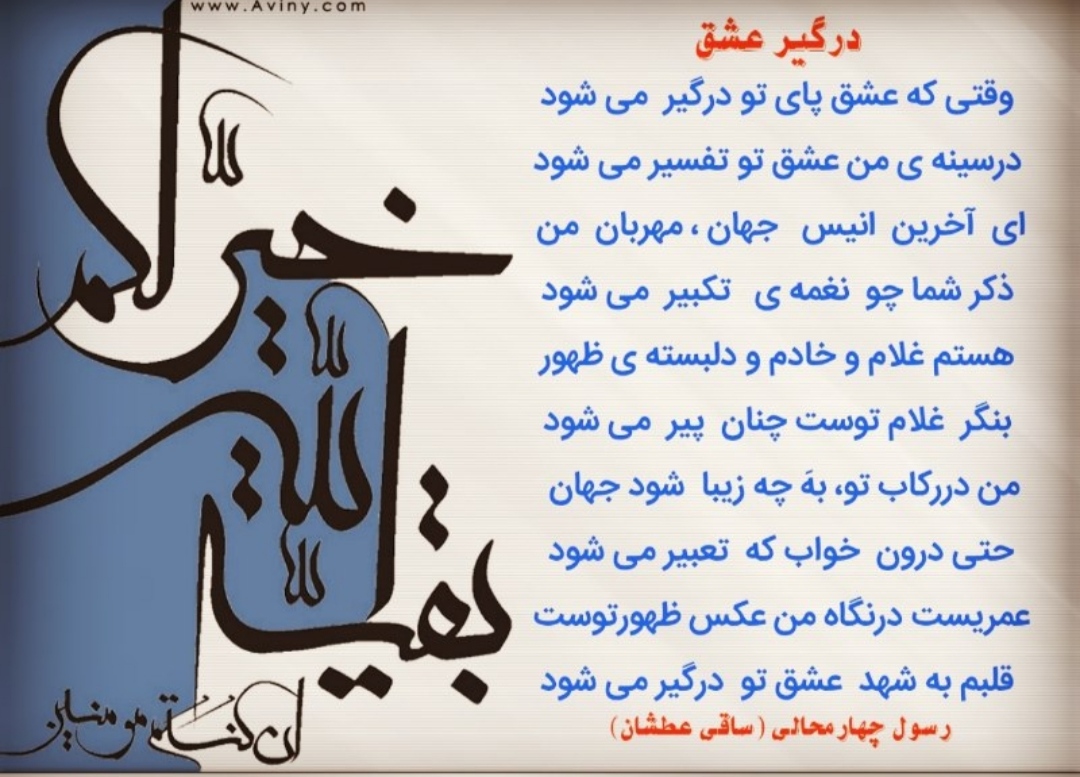 www.Aviny.com
درگیر عشق
وقتی که عشق پای تو درگیر می شود
درسینه ی من عشق تو تفسیر می شود
ای آخرین انیس جهان ، مهربان من
ذکر شما چو نغمه ی تکبیر می شود
هستم غلام و خادم و دلبسته ی ظهور
بنگر غلام توست چنان پیر می شود
من دررکاب تو، بهَ چه زیبا شود جهان
حتی درون خواب که تعبیر می شود
عمریست درنگاه من عکس ظهورتوست
قلبم به شهد عشق تو درگیر می شود
رسول چهارمحالی (ساقی عطشان)
بقیة الله
خیر لکم
ان کنتم مومنین